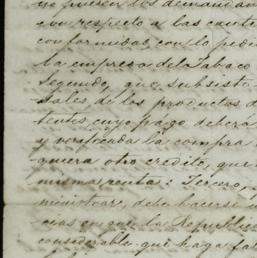 no fuesen los demandan
con respecto a las canti
conformidad con lo pedi
la empresa del Tabaco
Segundo, que subsiste
tales de los productos d
tentes, cuyo pago deberá
y verificada la compra
quiera otro credito, que
mismas rentas: Tercero,
ministrar, debe hacerse
cias en que la Republic
considerable que haga fa